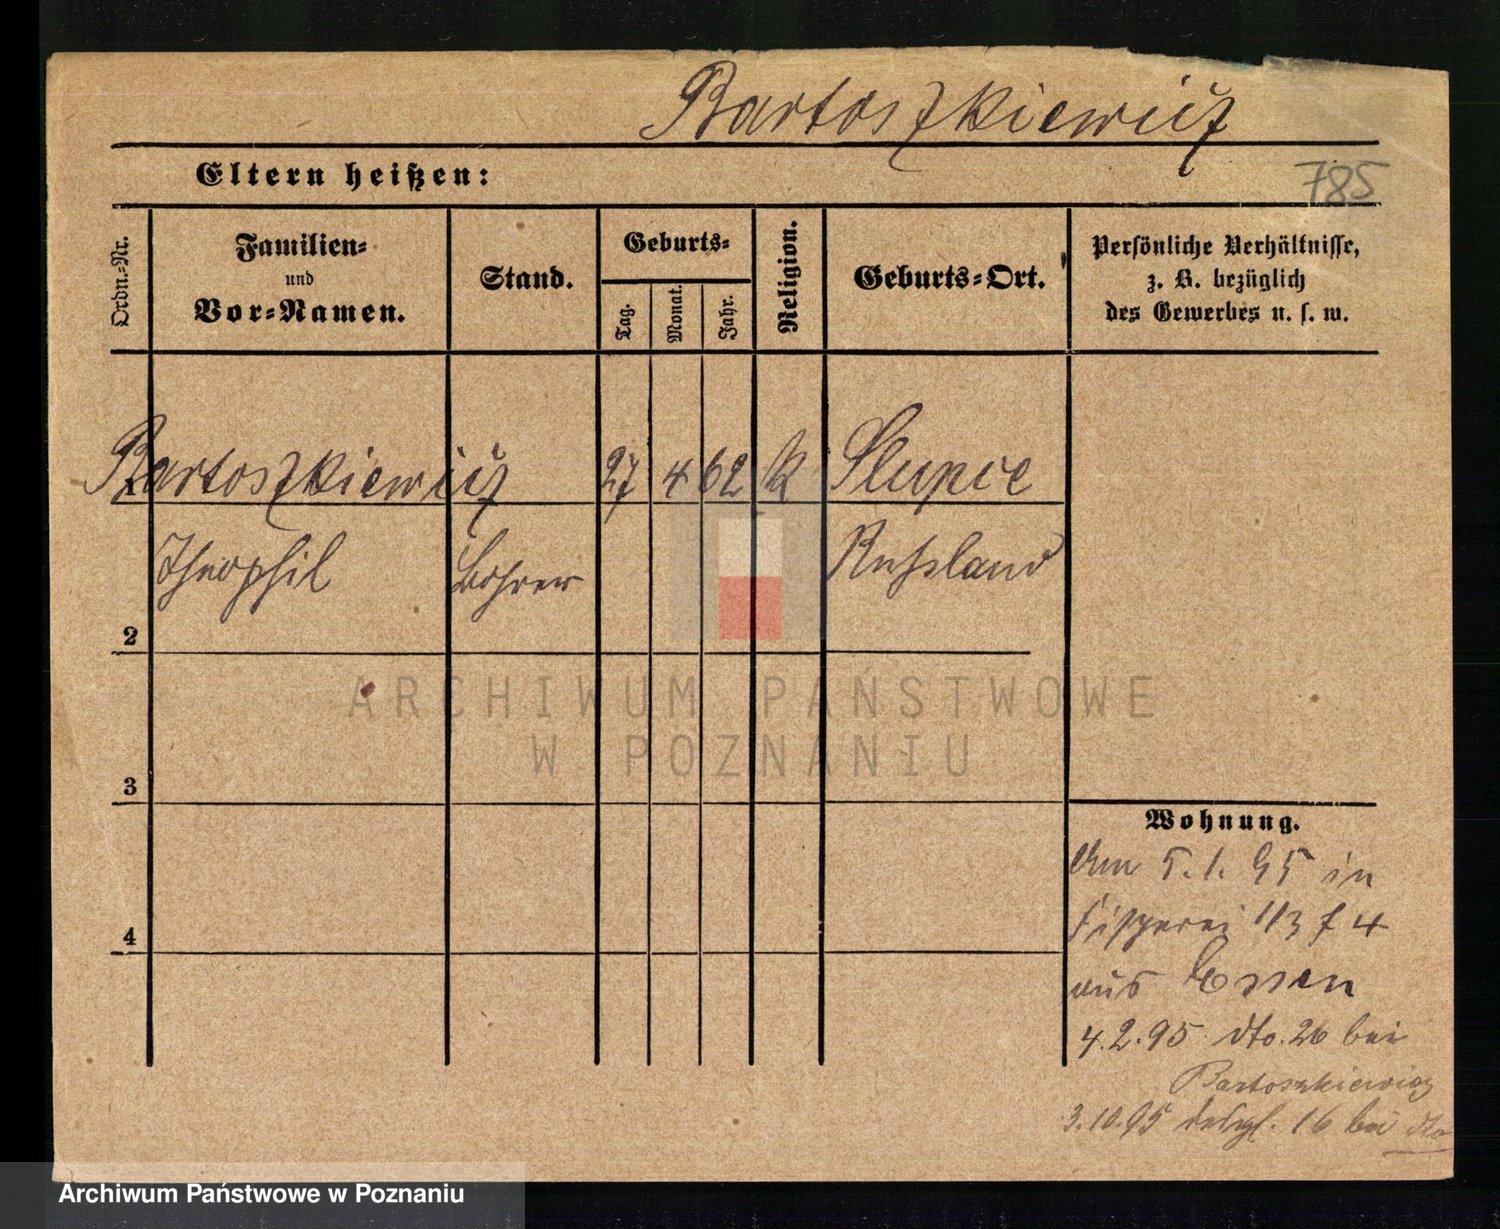 Bartoszkiewicz
Eltern heißen:
785
Ordn.=Nr.
Familien=
und
Vor=Namen.
Stand.
Geburts=
Tag.
Monat.
Jahr.
Religion.
Geburts=Ort.
Persönliche Verhältnisse,
z. B. bezüglich
des Gewerbes u. s. w.
1 Bartoszkiewicz 27 4 62 k Slupce
Theophil Bohrer Russland
2
ARCHIWUM PAŃSTWOWE
W POZNANIU
3
Wohnung.
Am 5.1.95 in
113 f 4
4
aus Essen
4.2.95 dto. 26 bei
Bartoszkiewicz
3.10.95 desgl. 16 bei dto
Archiwum Państwowe w Poznaniu